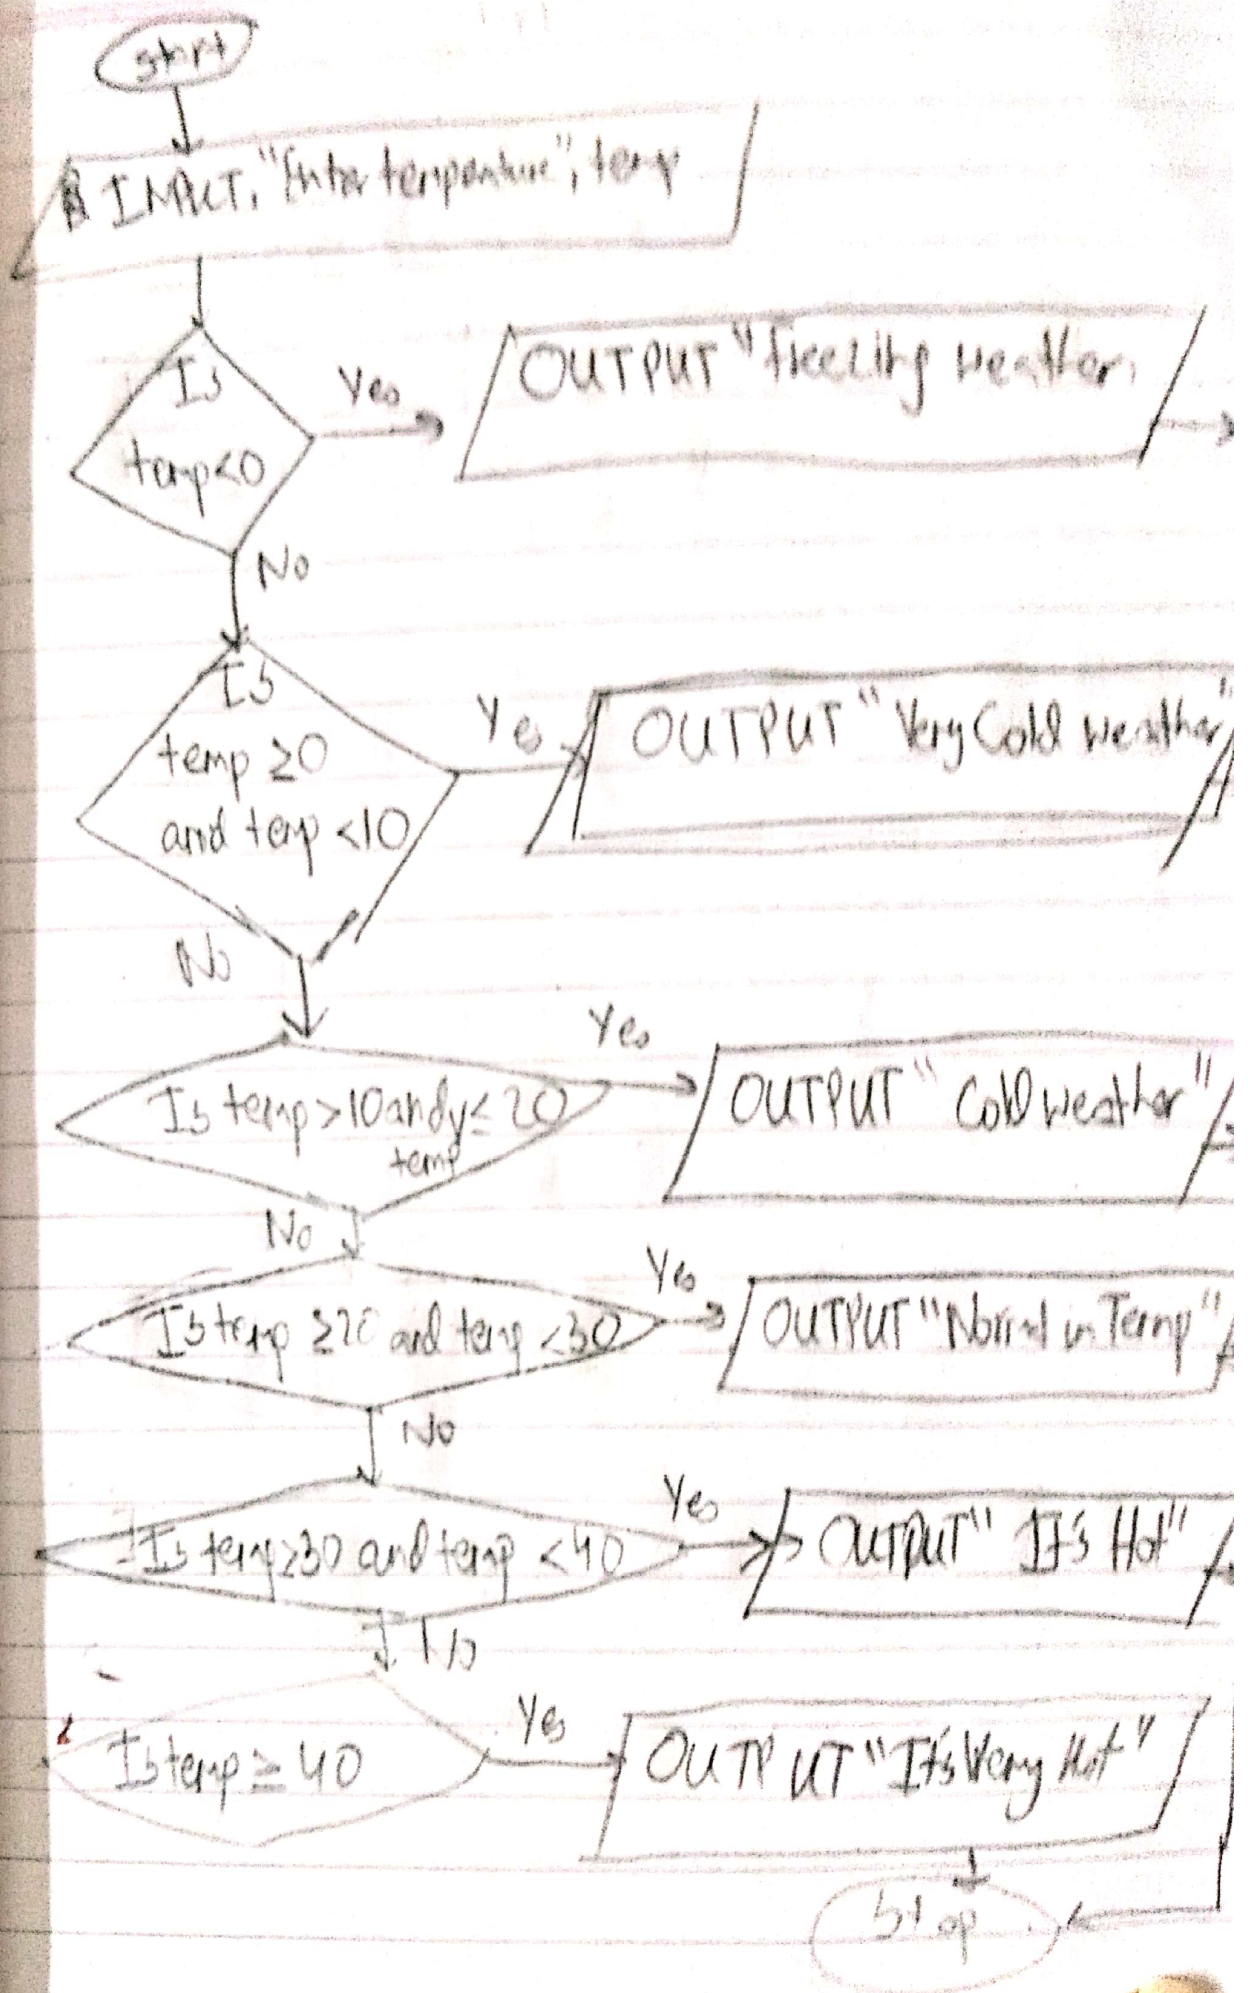 start
INPUT, "Enter temperature", temp
Is
temp<0
Yes
OUTPUT "Freezing weather
No
Is
temp ≥0
and temp <10
Yes
OUTPUT "Very Cold weather"
No
Is temp >10 and y ≤ 20
temp
Yes
OUTPUT "Cold weather"
No
Is temp ≥20 and temp <30
Yes
OUTPUT "Normal in Temp"
No
Is temp ≥30 and temp <40
Yes
OUTPUT "It's Hot"
No
Is temp ≥ 40
Yes
OUTPUT "It's Very Hot"
Stop